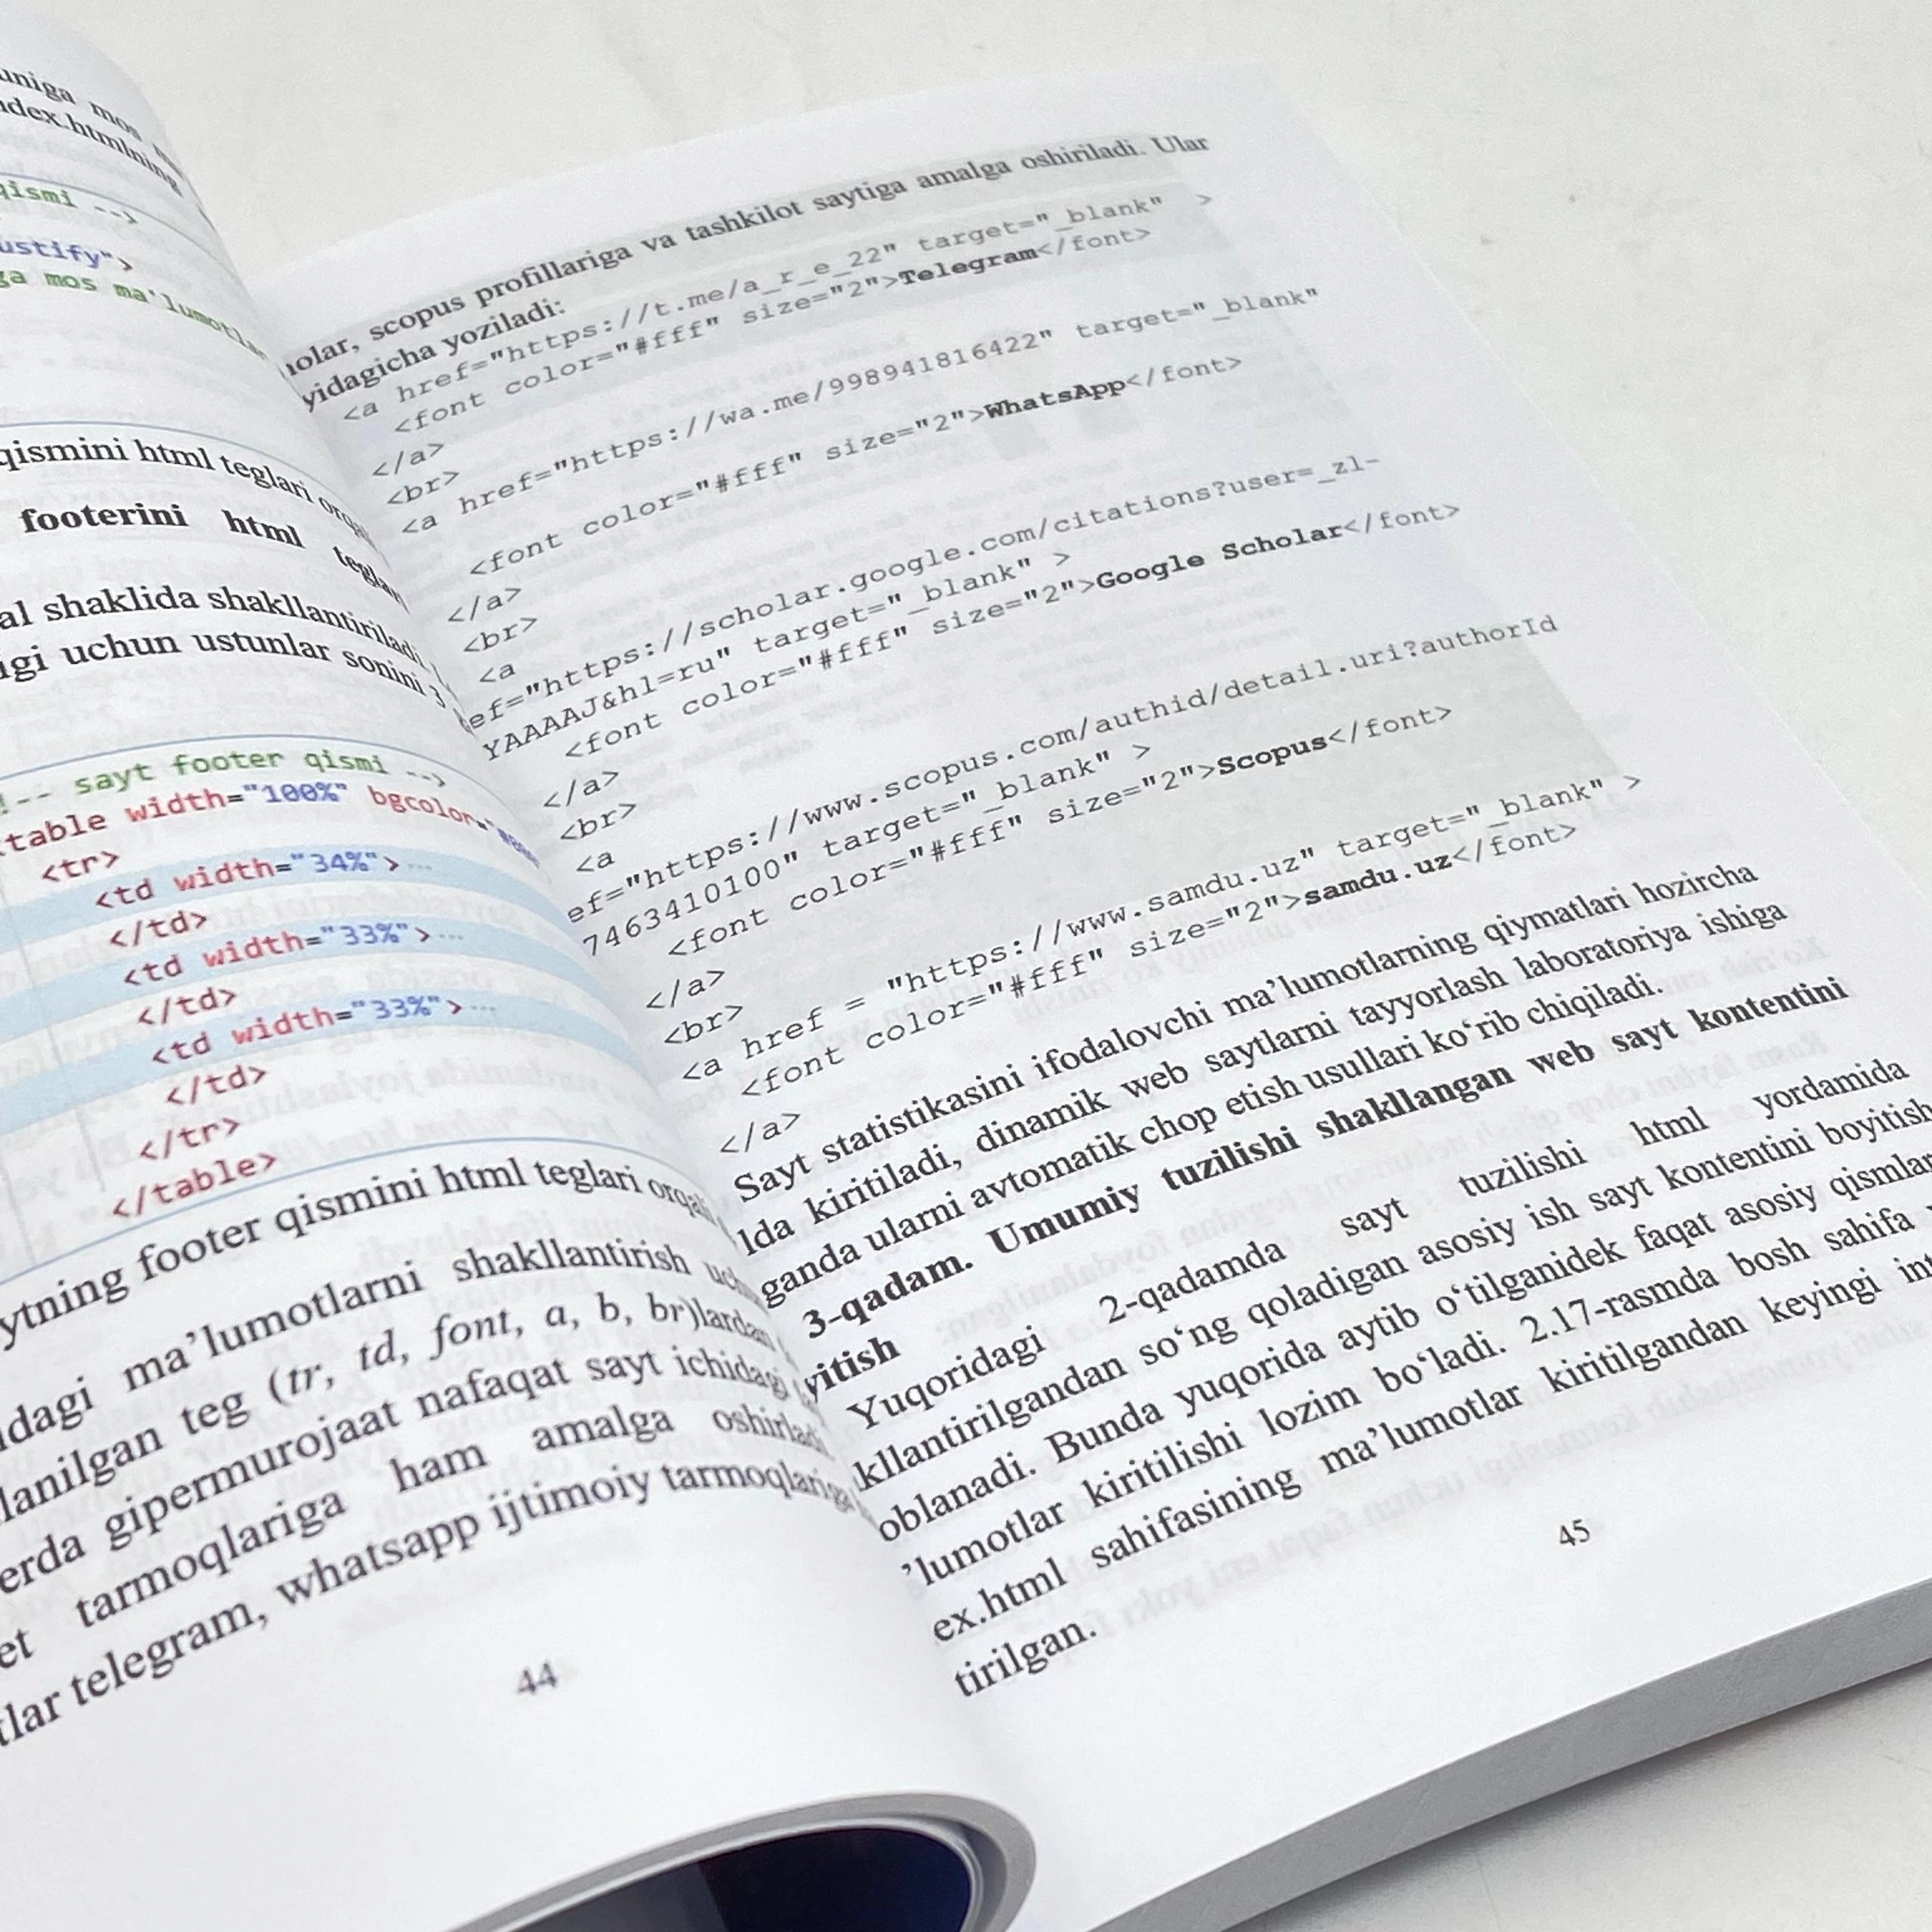 uniga mos
index.htmlning
qismi -->
justify">
ga mos ma'lumotla
qismini html teglari orqali
footerini html teglari
al shaklida shakllantiriladi.
igi uchun ustunlar sonini 3
!-- sayt footer qismi -->
<table width="100%" bgcolor="#
<tr>
<td width="34%">...
</td>
<td width="33%">...
</td>
<td width="33%">...
</td>
</tr>
</table>
ytning footer qismini html teglari orqali
idagi ma’lumotlarni shakllantirish uchun
lanilgan teg (tr, td, font, a, b, br)lardan
erda gipermurojaat nafaqat sayt ichidagi
et tarmoqlariga ham amalga oshirladi
tlar telegram, whatsapp ijtimoiy tarmoqlariga
44
holar, scopus profillariga va tashkilot saytiga amalga oshiriladi. Ular
yidagicha yoziladi:
<a href="https://t.me/a_r_e_22" target="_blank" >
<font color="#fff" size="2">Telegram</font>
</a>
<br>
<a href="https://wa.me/998941816422" target="_blank"
<font color="#fff" size="2">WhatsApp</font>
</a>
<br>
<a
ef="https://scholar.google.com/citations?user=_zl-
YAAAAJ&hl=ru" target="_blank" >
<font color="#fff" size="2">Google Scholar</font>
</a>
<br>
<a
ef="https://www.scopus.com/authid/detail.uri?authorId
7463410100" target="_blank" >
<font color="#fff" size="2">Scopus</font>
</a>
<br>
<a href = "https://www.samdu.uz" target="_blank" >
<font color="#fff" size="2">samdu.uz</font>
</a>
Sayt statistikasini ifodalovchi ma’lumotlarning qiymatlari hozircha
lda kiritiladi, dinamik web saytlarni tayyorlash laboratoriya ishiga
ganda ularni avtomatik chop etish usullari ko‘rib chiqiladi.
3-qadam. Umumiy tuzilishi shakllangan web sayt kontentini
yitish
Yuqoridagi 2-qadamda sayt tuzilishi html yordamida
kllantirilgandan so‘ng qoladigan asosiy ish sayt kontentini boyitish
oblanadi. Bunda yuqorida aytib o‘tilganidek faqat asosiy qismlar
’lumotlar kiritilishi lozim bo‘ladi. 2.17-rasmda bosh sahifa
ex.html sahifasining ma’lumotlar kiritilgandan keyingi int
tirilgan.
45